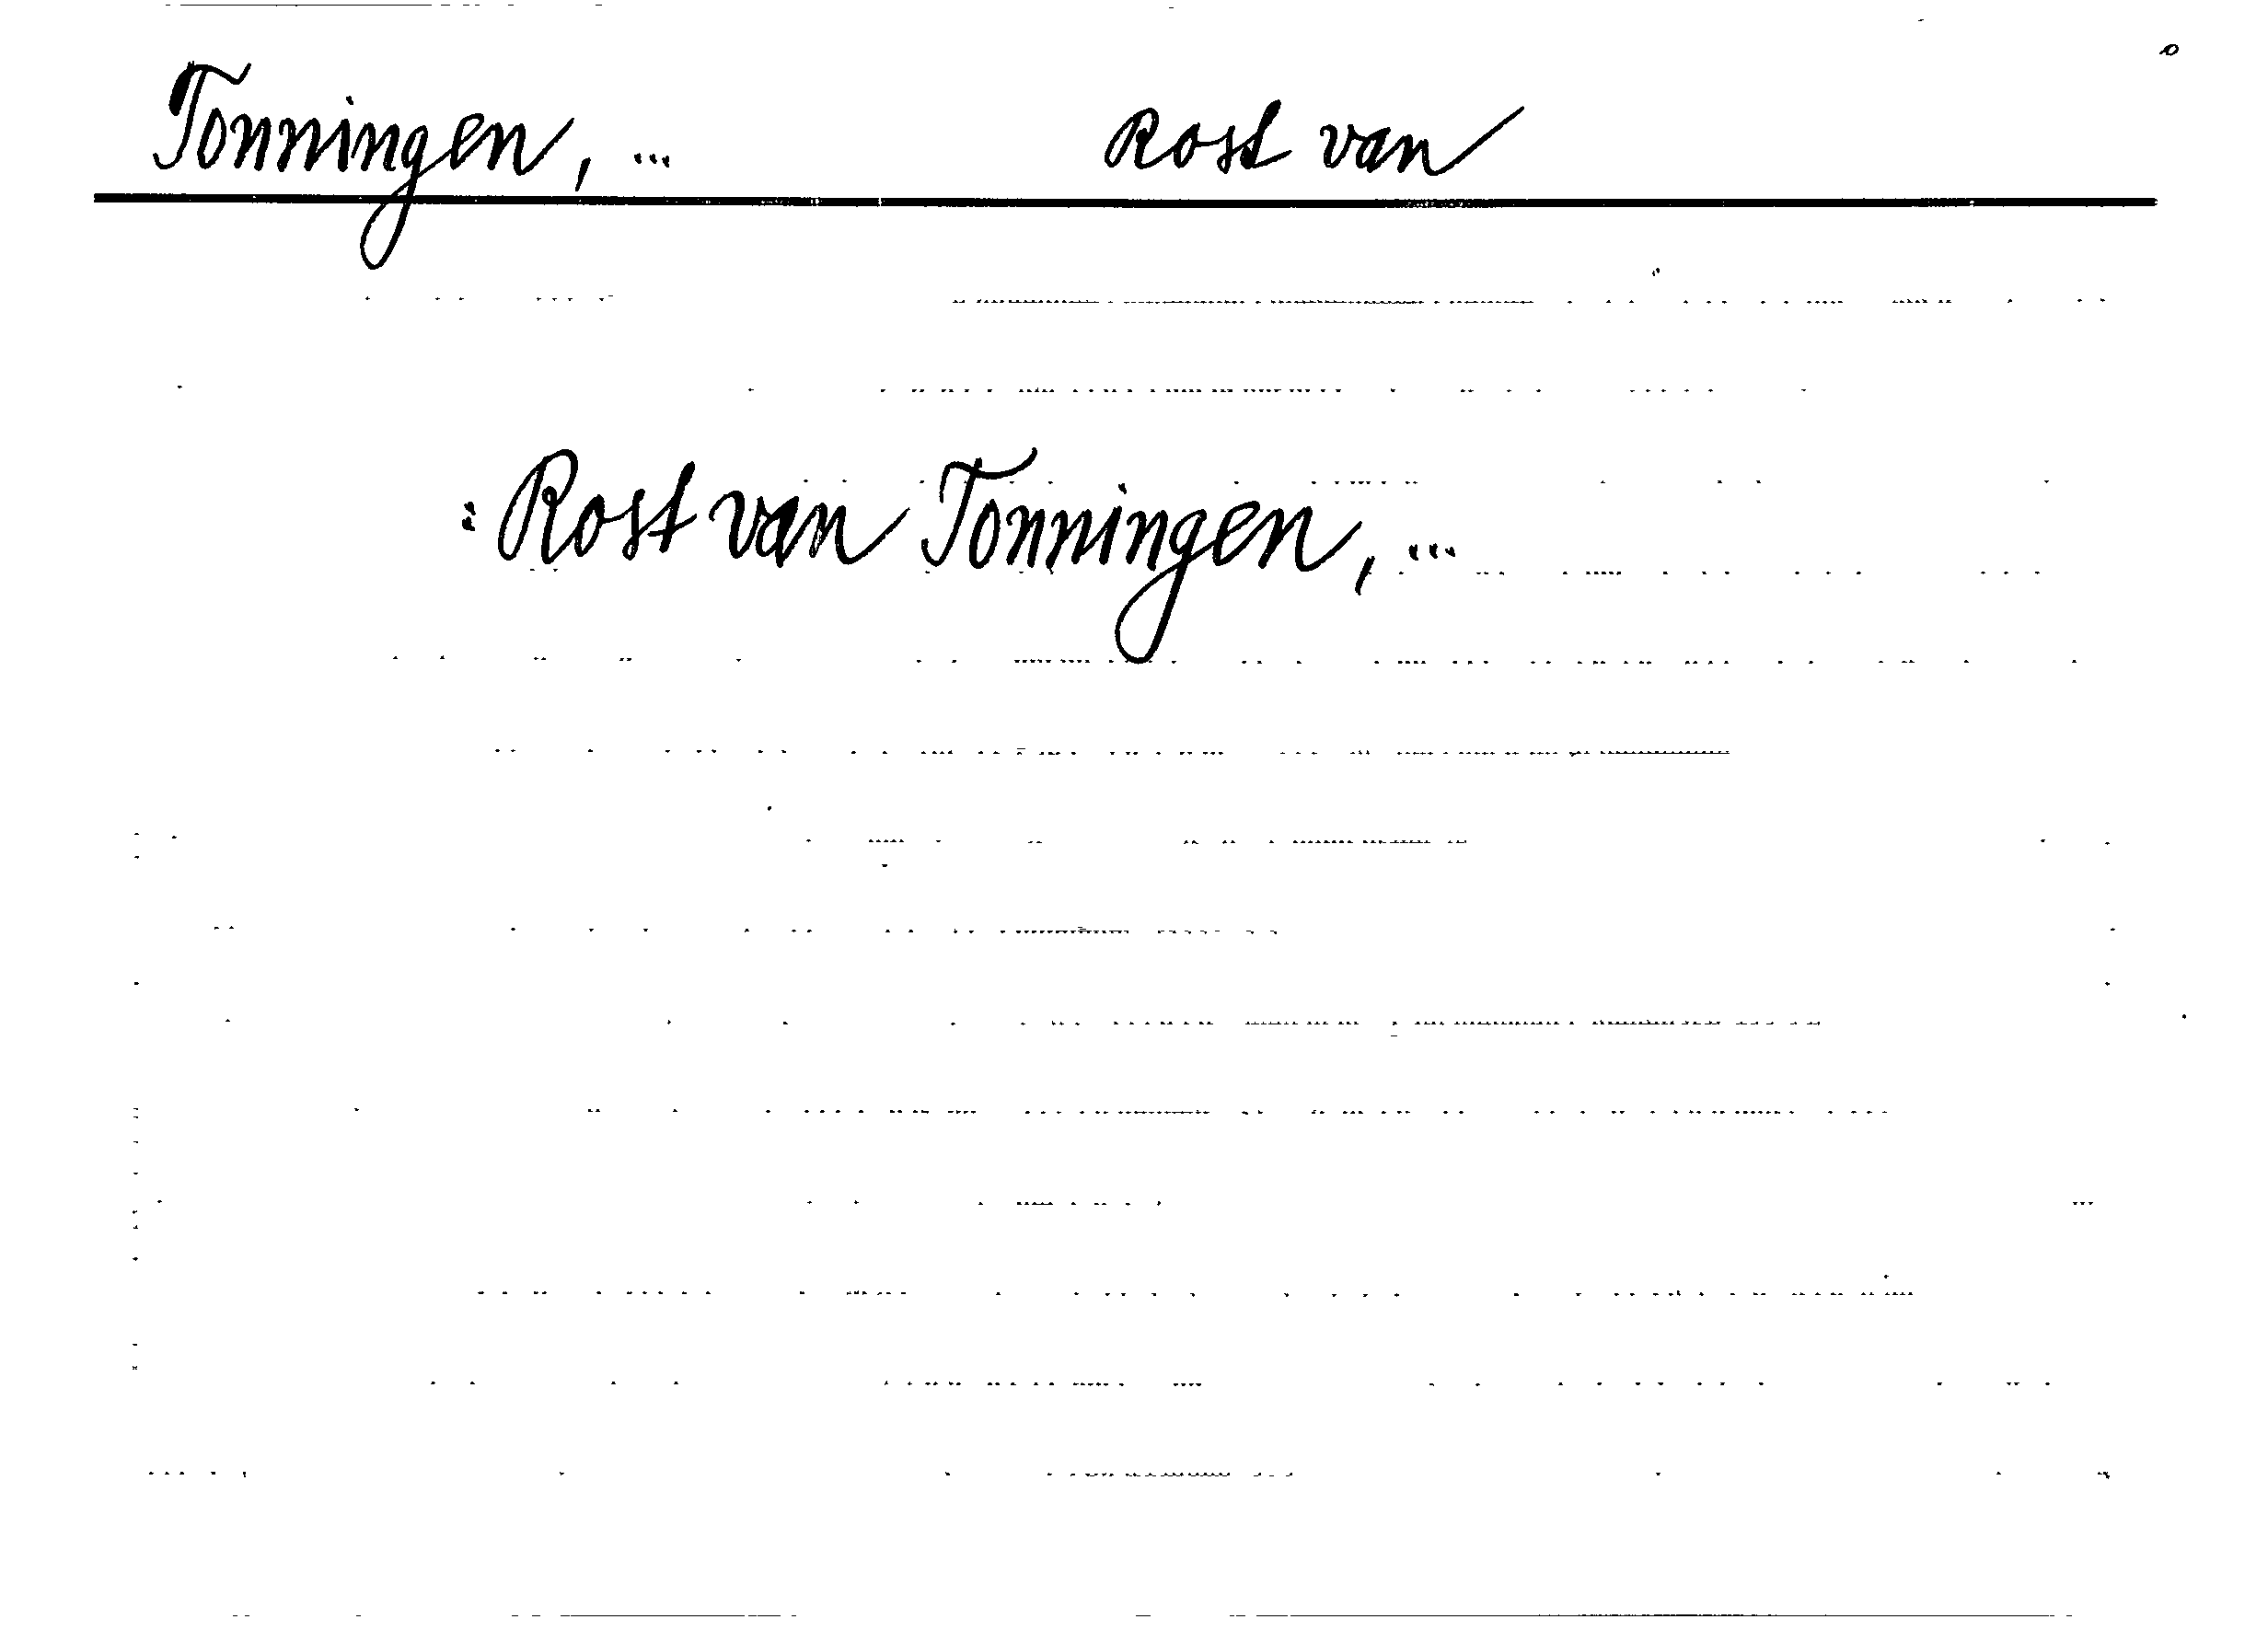 Tonningen, ... Rost van
: Rost van Tonningen, ...